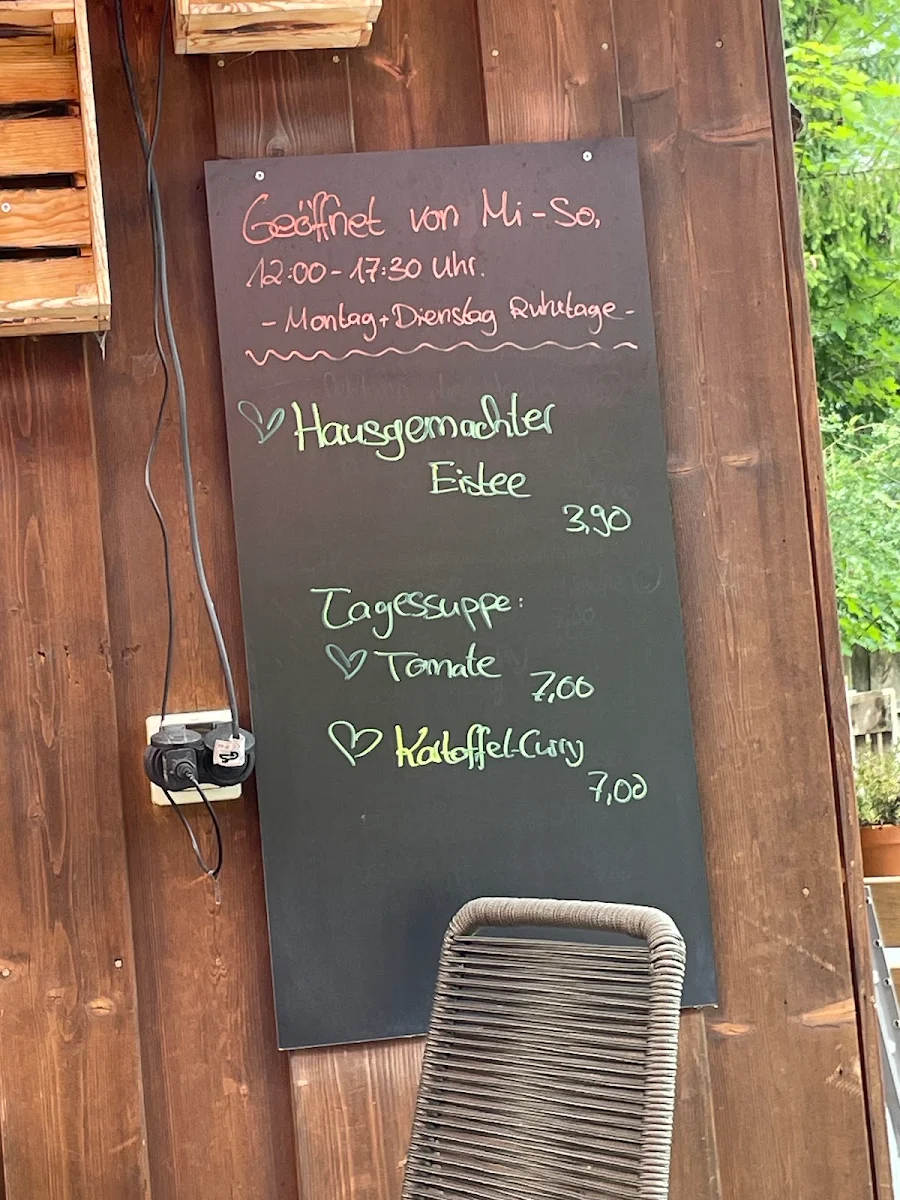 Geöffnet von Mi-So,
12:00-17:30 Uhr.
- Montag+Dienstag Ruhetage -
Hausgemachter
Eistee
3,90
Tagessuppe:
Tomate
7,00
Kartoffel-Curry
7,00